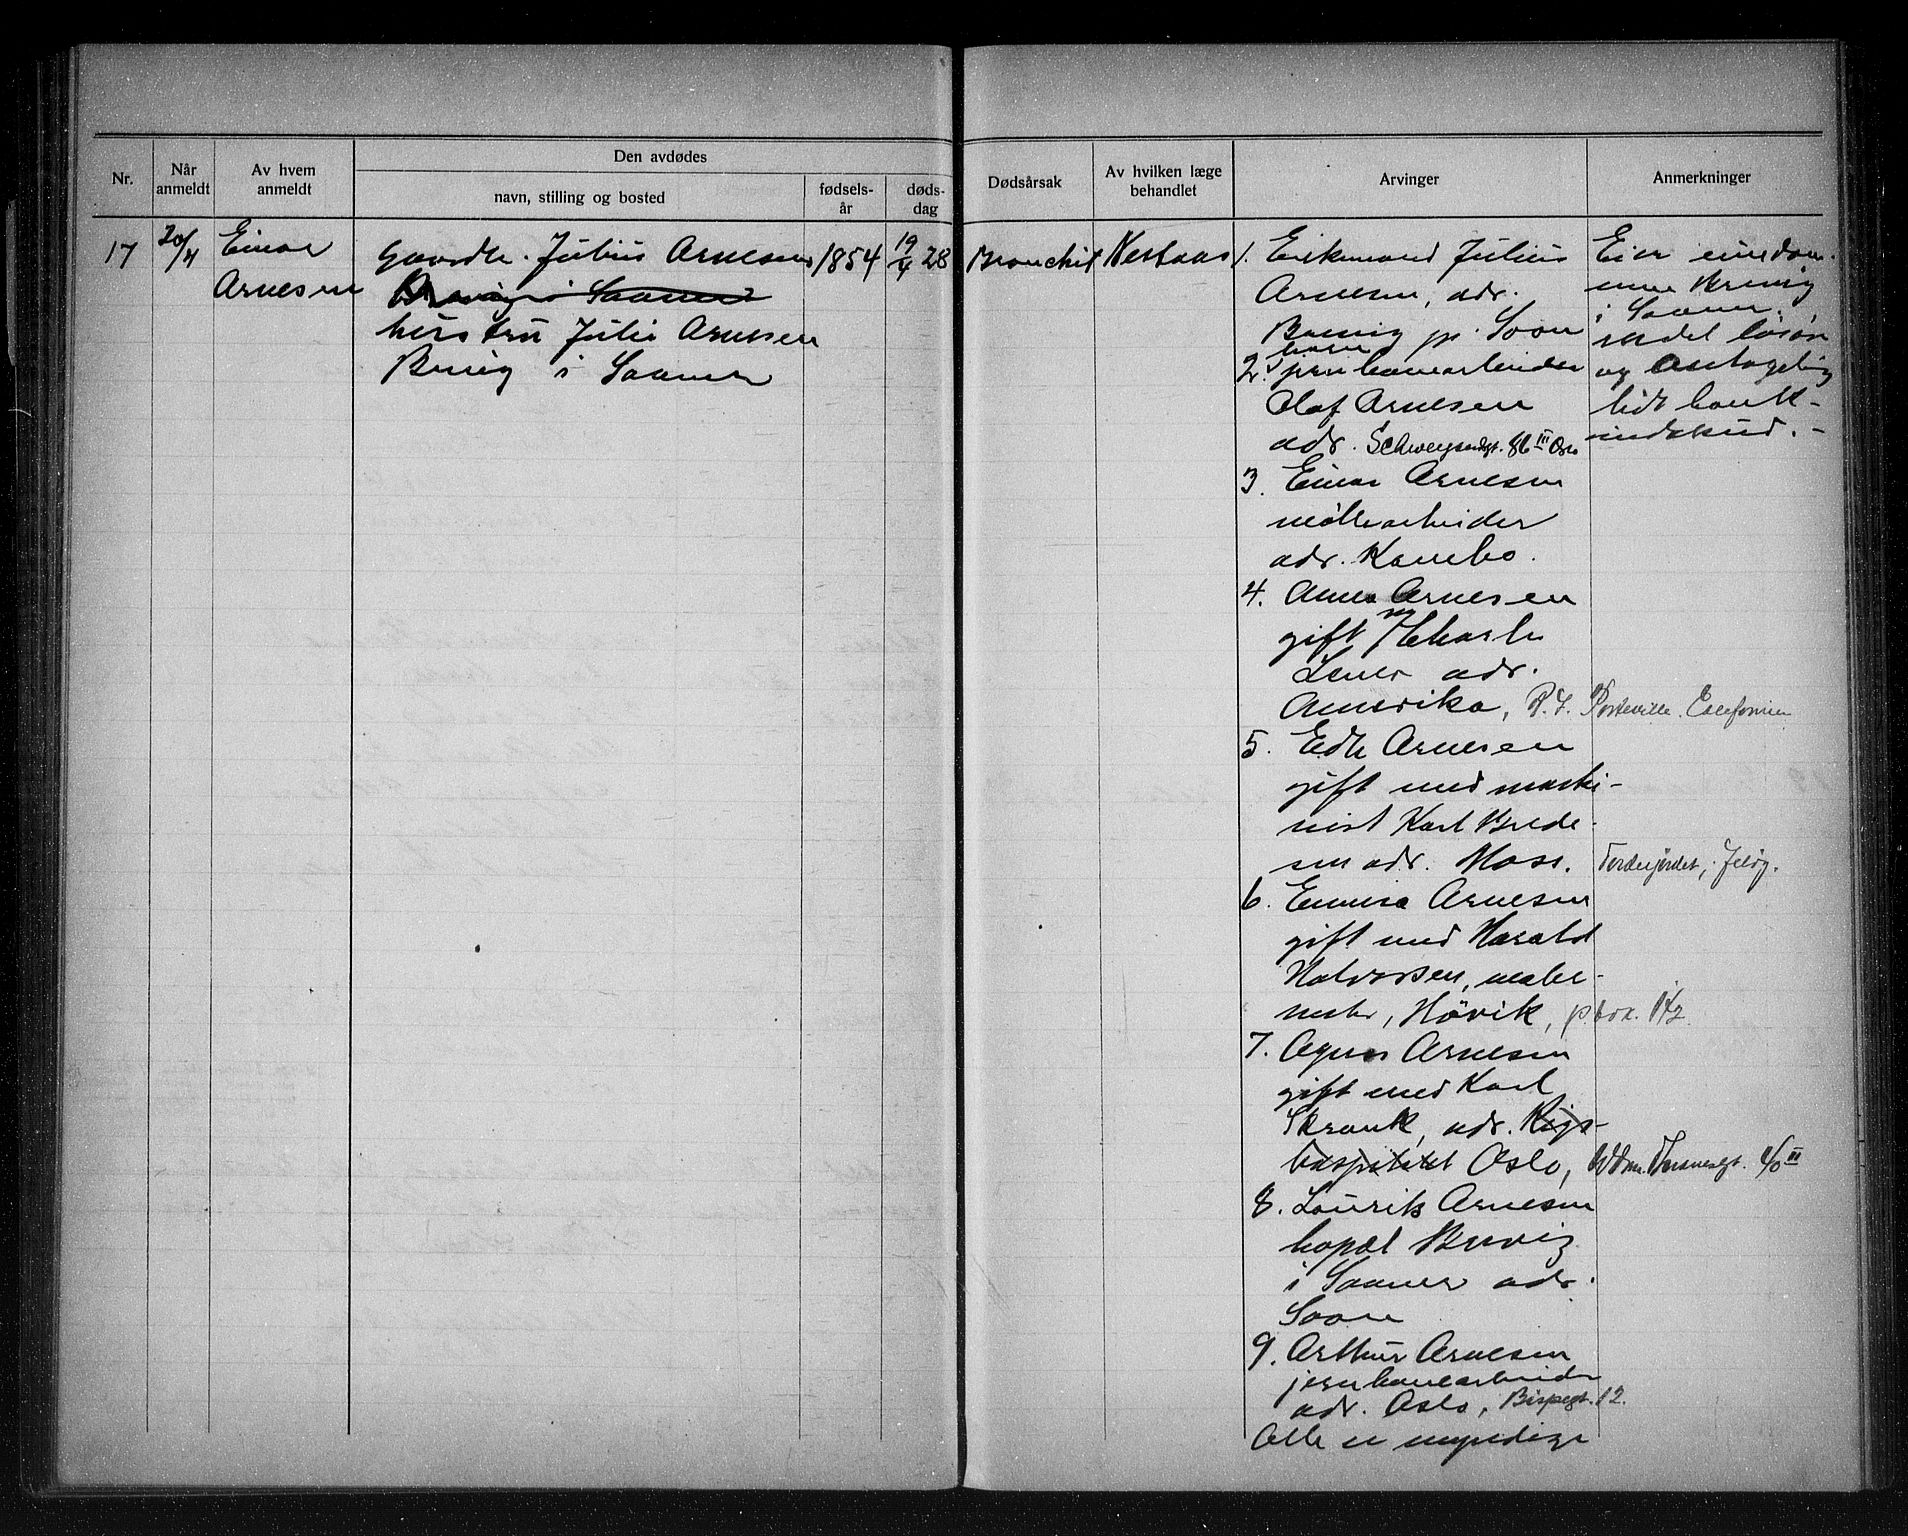 Nr.
Når anmeldt
Av hvem anmeldt
Den avdødes
navn, stilling og bosted
fødsels-år
døds-dag
Dødsårsak
Av hvilken læge behandlet
Arvinger
Anmerkninger
17
20/4
Einar
Arnesen
Gaardbr. Julius Arnesens
hustru Julie Arnesen
Brevig i Saaner
1854
19/4 28
Bronchit
Nestaas
1. Enkemand Julius
Arnesen, adr.
Brevig p. Soon
barn
2. jernbanearbeider
Olaf Arnesen
adr. Schweigaardsgt. 86 III Oslo
3. Einar Arnesen
møllearbeider
adr. Kambo.
4. Anna Arnesen
gift m/ Charle
adr.
Amerika, Porteville Californien
5. Arnesen
gift med maski-
nist Karl Brede-
sen adr. Moss. Tordenfjordet, Jeløy.
6. Emma Arnesen
gift med Harald
Halvorsen, maler-
mester, Høvik, p.box. 142
7. Agnes Arnesen
gift med Karl
Skrank, adr. Rigs-
hospitalet Oslo,
8. Laurits Arnesen
bopæl Brevig
i Saaner adr.
Soon
9. Arthur Arnesen
jernbanearbeider
adr. Oslo, Bispegt. 12.
Alle er myndige
Eier eiendom-
men Brevig
i Saaner,
endel løsøre
og antagelig
lidt bank-
indskud. -